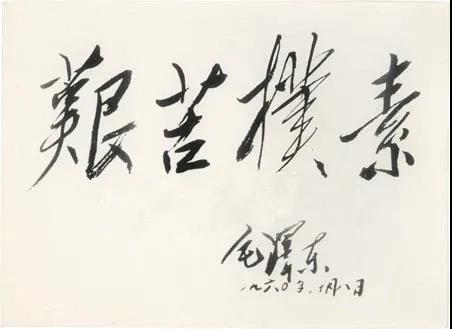 艱苦樸素
毛澤东
一九六〇年、一月八日